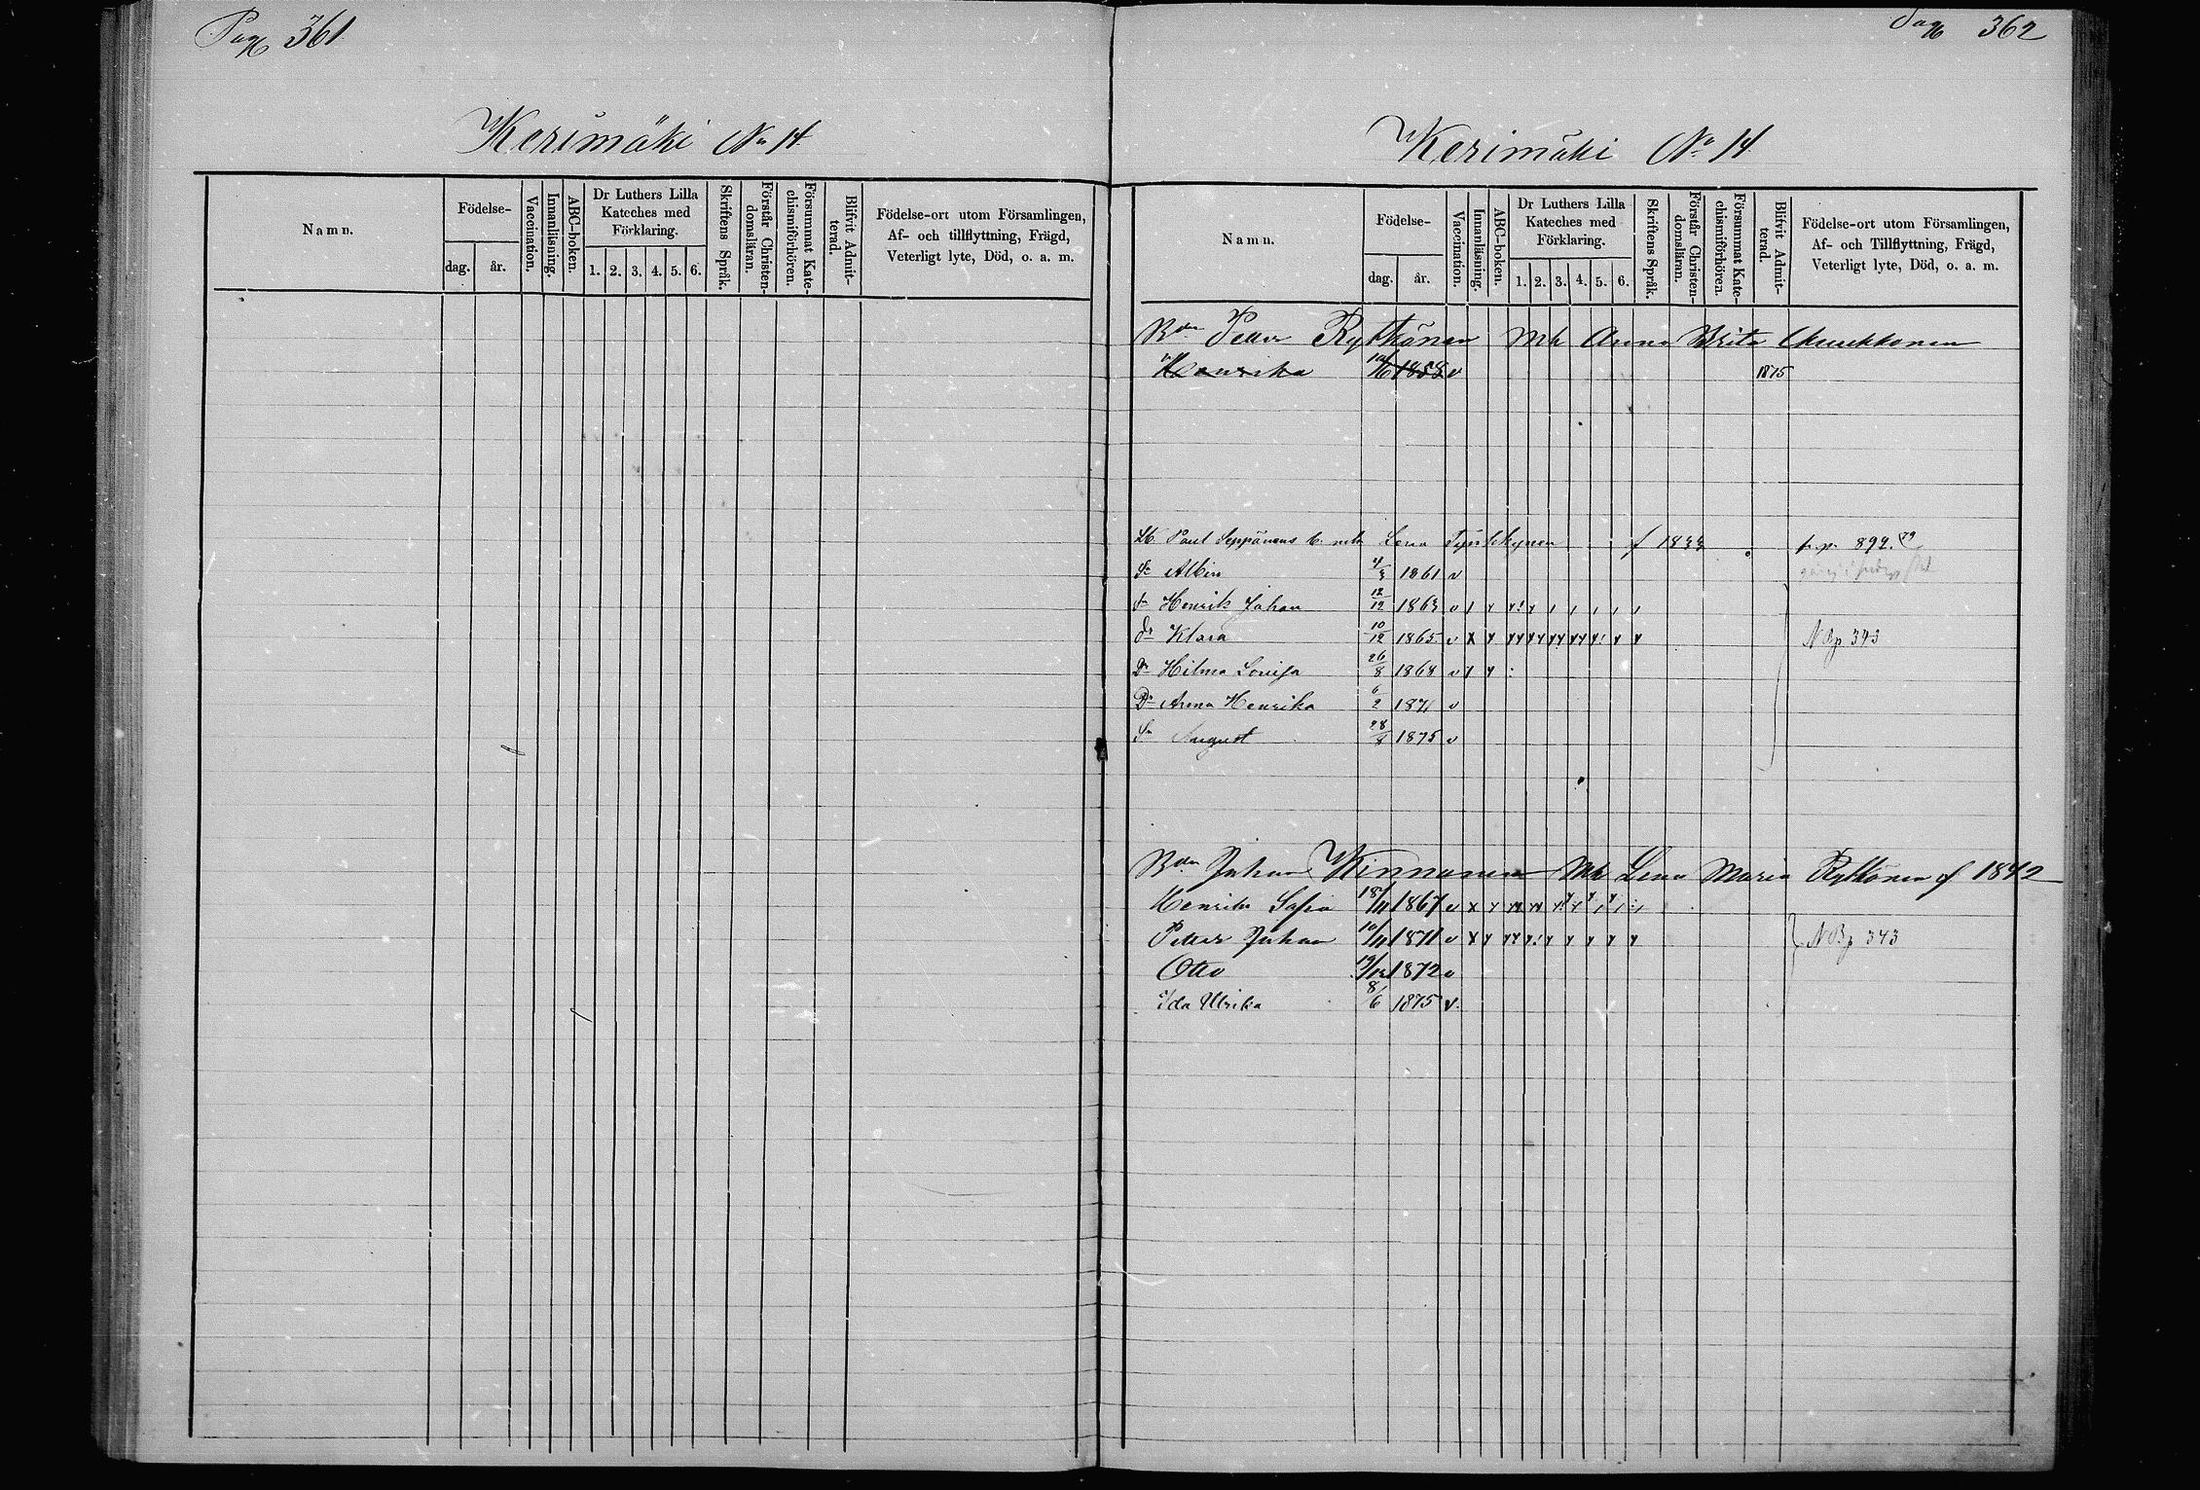 Pag 361
Kerimäki No 14
Namn.
Födelse-
dag.
år.
Vaccination.
Innanläsning.
ABC-boken.
Dr Luthers Lilla
Kateches med
Förklaring.
1. 2. 3. 4. 5. 6.
Skriftens Språk.
Förstår Christen-
domsläran.
Försummat Kate-
chismiförhören.
Blifvit Admit-
terad.
Födelse-ort utom Församlingen,
Af- och tillflyttning, Frägd,
Veterligt lyte, Död, o. a. m.
Pag 362
Kerimäki No 14
Namn.
Födelse-
dag.
år.
Vaccination.
Innanläsning.
ABC-boken.
Dr Luthers Lilla
Kateches med
Förklaring.
1. 2. 3. 4. 5. 6.
Skriftens Språk.
Förstår Christen-
domsläran.
Försummat Kate-
chismiförhören.
Blifvit Admit-
terad.
Födelse-ort utom Församlingen,
Af- och Tillflyttning, Frägd,
Veterligt lyte, Död, o. a. m.
Bdn Petter Rytkönen Mh Anna Brita
Henrika 1858 v 1875
Paul Seppänens Lena f 1833 892
Sn Albin 4/3 1861 v
Sn Henrik Johan 12/12 1863 v
Dr Klara 10/12 1865 v NB p 343
Dr Hilma Lovisa 26/8 1868 v
Dr Anna Henrika 6/2 1871 v
Sn August 28/8 1875 v
Bdn Johan Kinnunen Mh Lena Maria Rytkönen f 1842
Henrika Sofia 18/11 1867 v
Petter Johan 10/11 1871 v NB p 343
Otto 19/12 1872 v
Ida Ulrika 8/6 1875 v